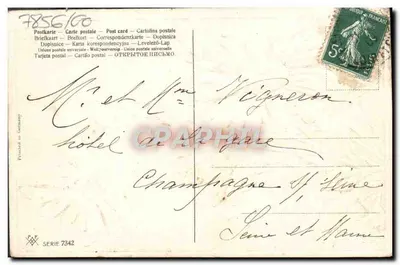 7856/60
Postkarte — Carte postale — Post card — Cartolina postale
Briefkaart — Brefkort — Correspondenzkarte — Dopisnica
Dopisnice — Karta korespondencyjna — Levelező-Lap
Union postale universelle — Weltpostverein — Unione postale universale
Tarjeta postal — Cartão postal — ОТКРЫТОЕ ПИСЬМО.
5c
M. et Mme Vigneron
hôtel de la gare
Champagne S/ Seine
Seine et Marne
Printed in Germany
SERIE 7342